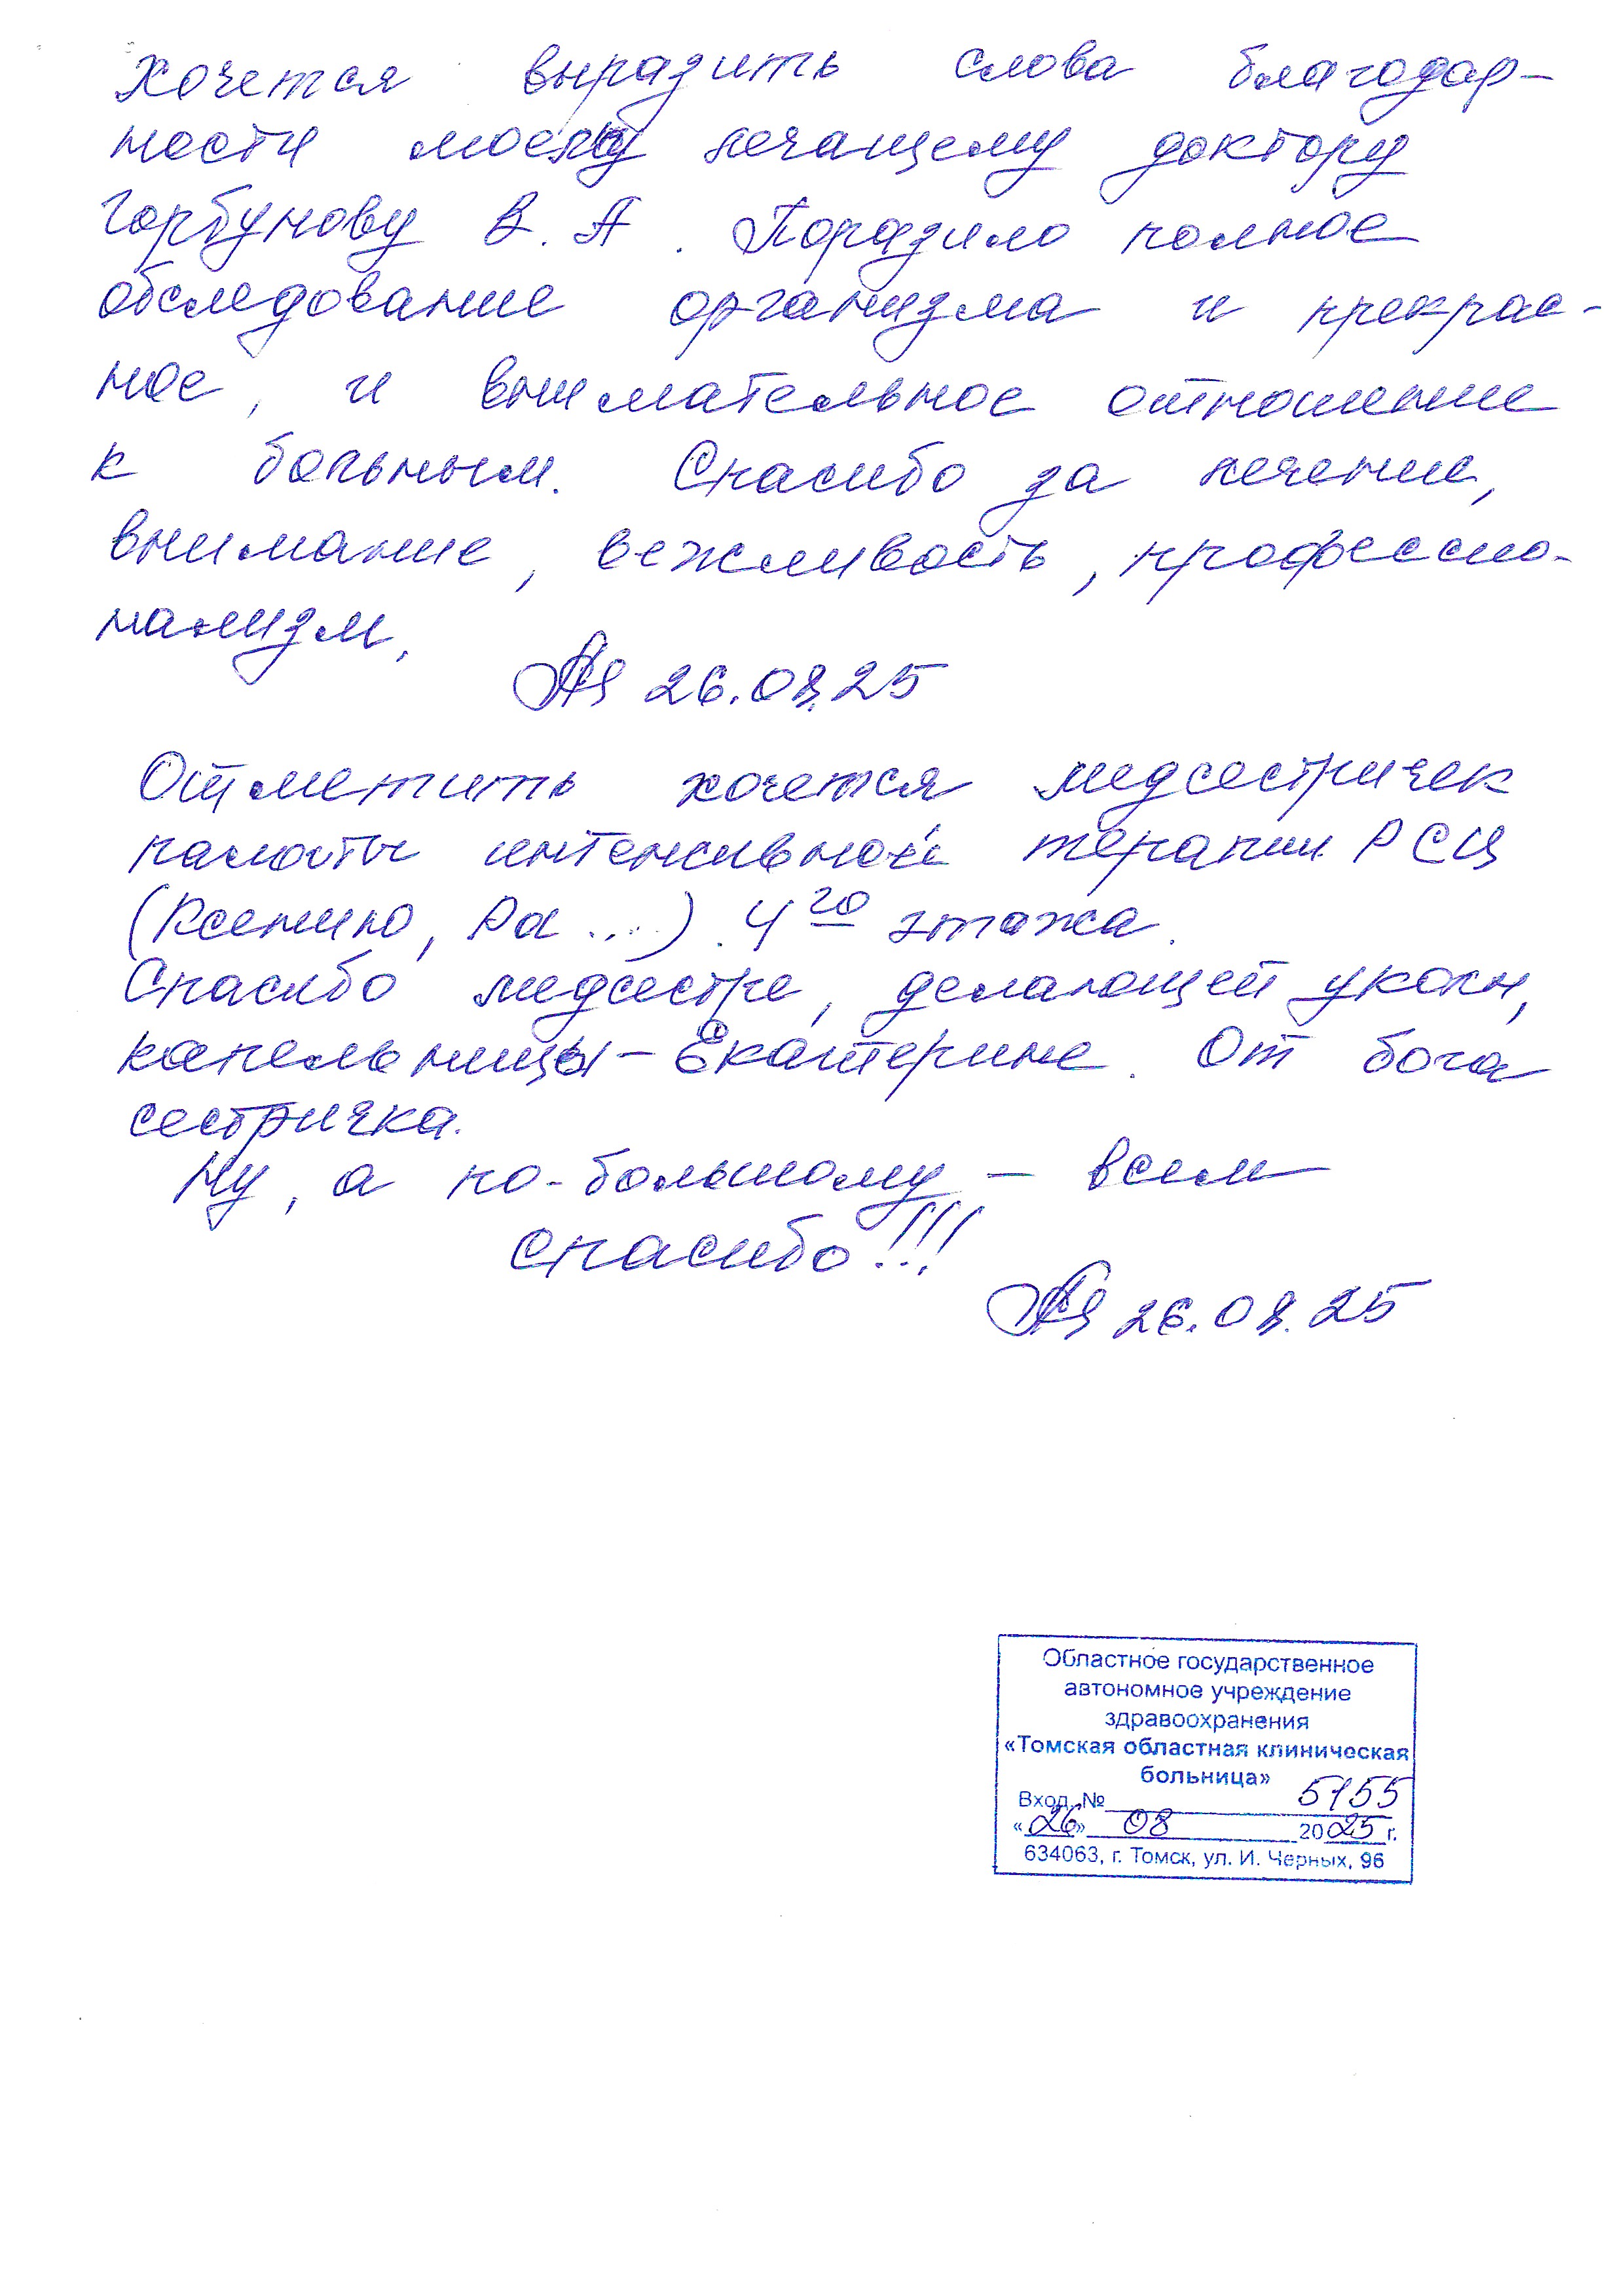 Хочется выразить слова благодар-
ности моему лечащему доктору
Горбунову В. А. Поразило полное
обследование организма и прекрас-
ное, и внимательное отношение
к больным. Спасибо за лечение,
внимание, вежливость, профессио-
нализм.
26.08.25
Отметить хочется медсестричек
палаты интенсивной терапии РСЦ
(Ксению, Ра ...). 4го этажа.
Спасибо медсестре, делающей уколы,
капельницы - Екатерине. От бога
сестричка.
Ну, а по-большому - всем
спасибо!!!
26.08.25
Областное государственное
автономное учреждение
здравоохранения
«Томская областная клиническая
больница»
Вход. № 5155
«26» 08 2025 г.
634063, г. Томск, ул. И. Черных, 96